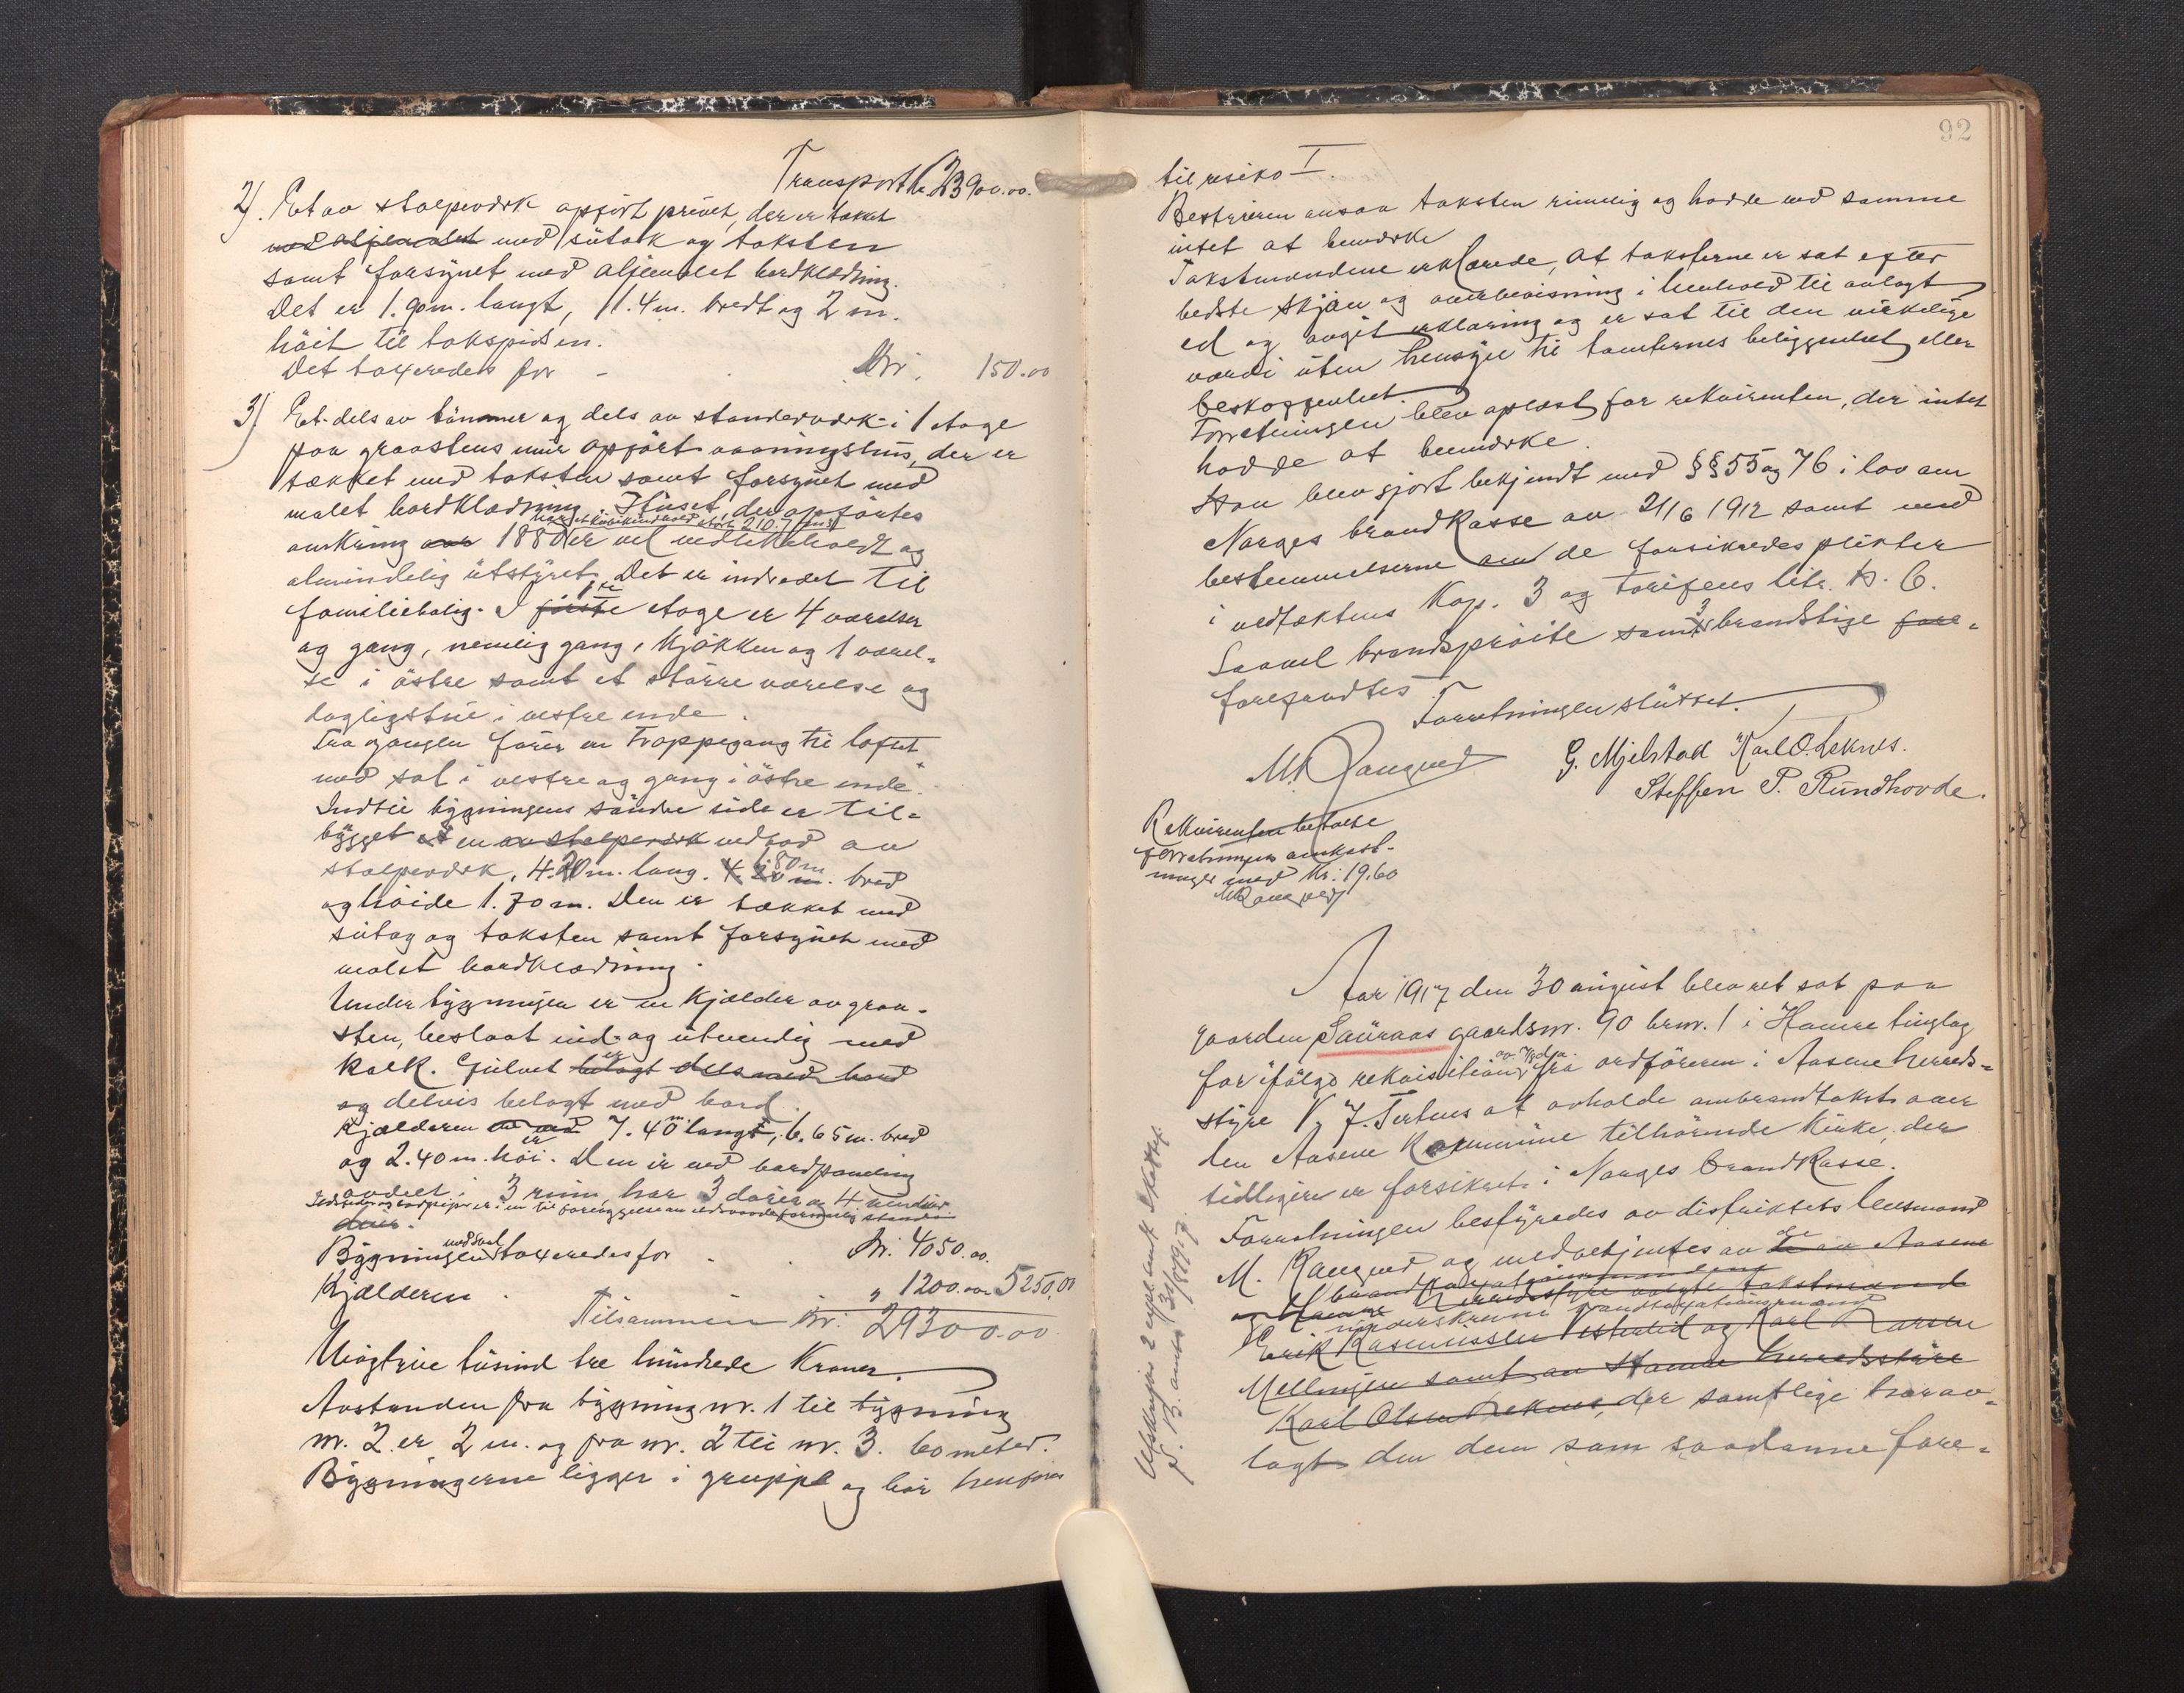 Transport kr. 23900.00.
2). Et av stolpeverk opfört privet, der er tækket
med oljemalet med sutak og taksten
samt forsynet med oljemalet bordklædning.
Det er 1.90m. langt, 1.4m. bredt og 2 m.
höit til takspidsen.
Det taxeredes for - Kr. 150.00
3) Et dels av tömmer og dels av standerverk i 1 etage
paa graastens mur opfört vaaningshus, der er
tækket med taksten samt forsynet med
malet bordklædning. Huset, der opförtes
omkring aar 1880 er vel vedlikeholdt og
almindelig utstyret. Det er indredet til
familiebolig. I förste 1ste etage er 4 værelser
og gang, nemlig gang, kjökken og 1 værel-
se i östre samt et större værelse og
dagligstue i vestre ende.
Fra gangen förer en trappegang til loftet
med sal i vestre og gang i östre ende.
Indtil bygningens söndre side er til-
bygget en av stolpeverk vedbod av
stolpeverk, 4.20m. lang. 1.80m. bred
og höide 1.70m. Den er tækket med
sutag og taksten samt forsynet med
malet bordklædning.
Under bygningen er en kjælder av graa-
sten, beslaat ind- og utvendig med
kalk. Gulvet er belagt dels med bord
og delvis belagt med bord.
Kjælderen er 7.40m langt, 6.65m. bred
og 2.40m. höi. Den er ved bordpaneling
avdelt i 3 rum, har 3 dörer og 4 vinduer
Bygningen med taxeredes for - Kr. 4050.00.
Kjælderen - " 1200.00 5250,00
Tilsammen kr. 29300.00
Niogtyve tusind tre hundrede Kroner.
Avstanden fra bygning nr. 1 til bygning
nr. 2 er 2 m. og fra nr. 2 til nr. 3. 60 meter.
Bygningerne ligger i gruppe og bör henföres
92
til risiko I.
Bestyreren ansaa taksten rimelig og hadde ved samme
intet at bemerke
Takstmændene erklærede, at taksterne er sat efter
bedste skjön og overbevisning i henhold til avlagt
ed og avgit erklæring og er sat til den virkelige
værdi uten hensyn til tomternes beliggenhet eller
beskaffenhet.
Forretningen blev oplæst for rekvirenten, der intet
hadde at bemerke.
Han blev gjort bekjendt med §§ 55 og 76 i lov om
Norges brandkasse av 21/6 1912 samt med
bestemmelserne om de forsikredes plikter
i vedtektens Kap. 3 og tarifens litr. B. C.
Saavel brandspröite samt 3 brandstige fore-
forefandtes.
Forretningen sluttet.
M. Rangved G. Mjelstad Karl O. Leknes.
Steffen P. Rundhovde.
Rekvirenten betalte
forretningens omkost-
ninger med Kr. 19.60
M Rangved
Aar 1917 den 30 august blev ret sat paa
gaarden Sauraas gaardsnr. 90 brnr. 1 i Hamre tinglag
for ifölge rekvisition av fra ordföreren i Aasene herreds-
styre at avholde ombrandtakst over
den Aasene Kommune tilhörende Kirke, der
tidligere er forsikret i Norges brandkasse.
Forretningen bestyredes av distriktets lensmand
M. Rangved og medbetjentes av de av Aasene
og Hamre herredsstyre valgte takstmænd
underskrevne brandtaxationsmænd
Erik Rasmussen Vesterlid og Karl Larsen
Mellingen samt av Hamre herredsstyre
Karl Olsen Leknes, der samtlige har av-
lagt den dem som saadanne fore-